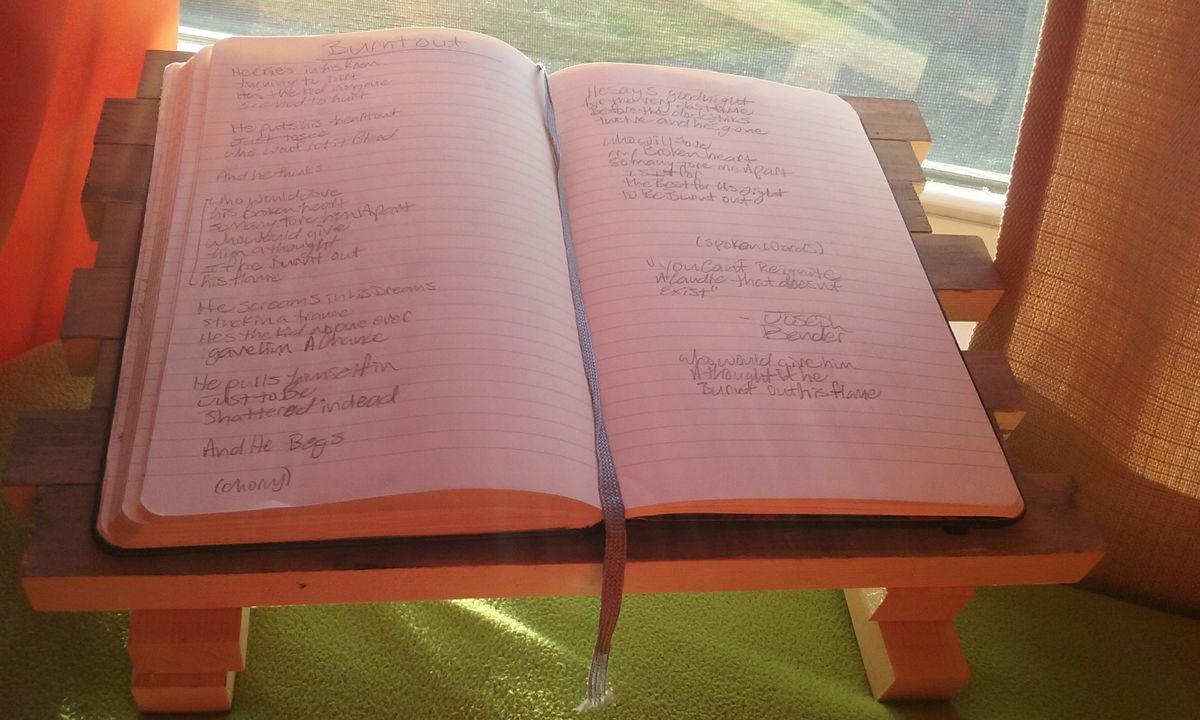 Burnt out
He cries in his Room
turning to Dirt
He's the kid anyone
seemed to hurt
He puts his heart out
Just to see
who wont let it Bleed
And he thinks
who would love
his Broken heart
so many tore him Apart
who would give
him a thought
If he Burnt out
his flame
He screams in his Dreams
stuck in a trance
He's the kid no one ever
gave him A chance
He pulls himself in
Just to Be
shattered in dead
And He Begs
He says goodnight
for the very last time
Before the clock
twelve and he's gone
who will love
my Broken heart
so many tore me Apart
is it for
the Best for his light
to Be Burnt out
(spoken words)
"you Cant Reignite
A candle that doesnt
exist"
- Joseph
Bender
who would give him
A thought if he
Burnt out his flame